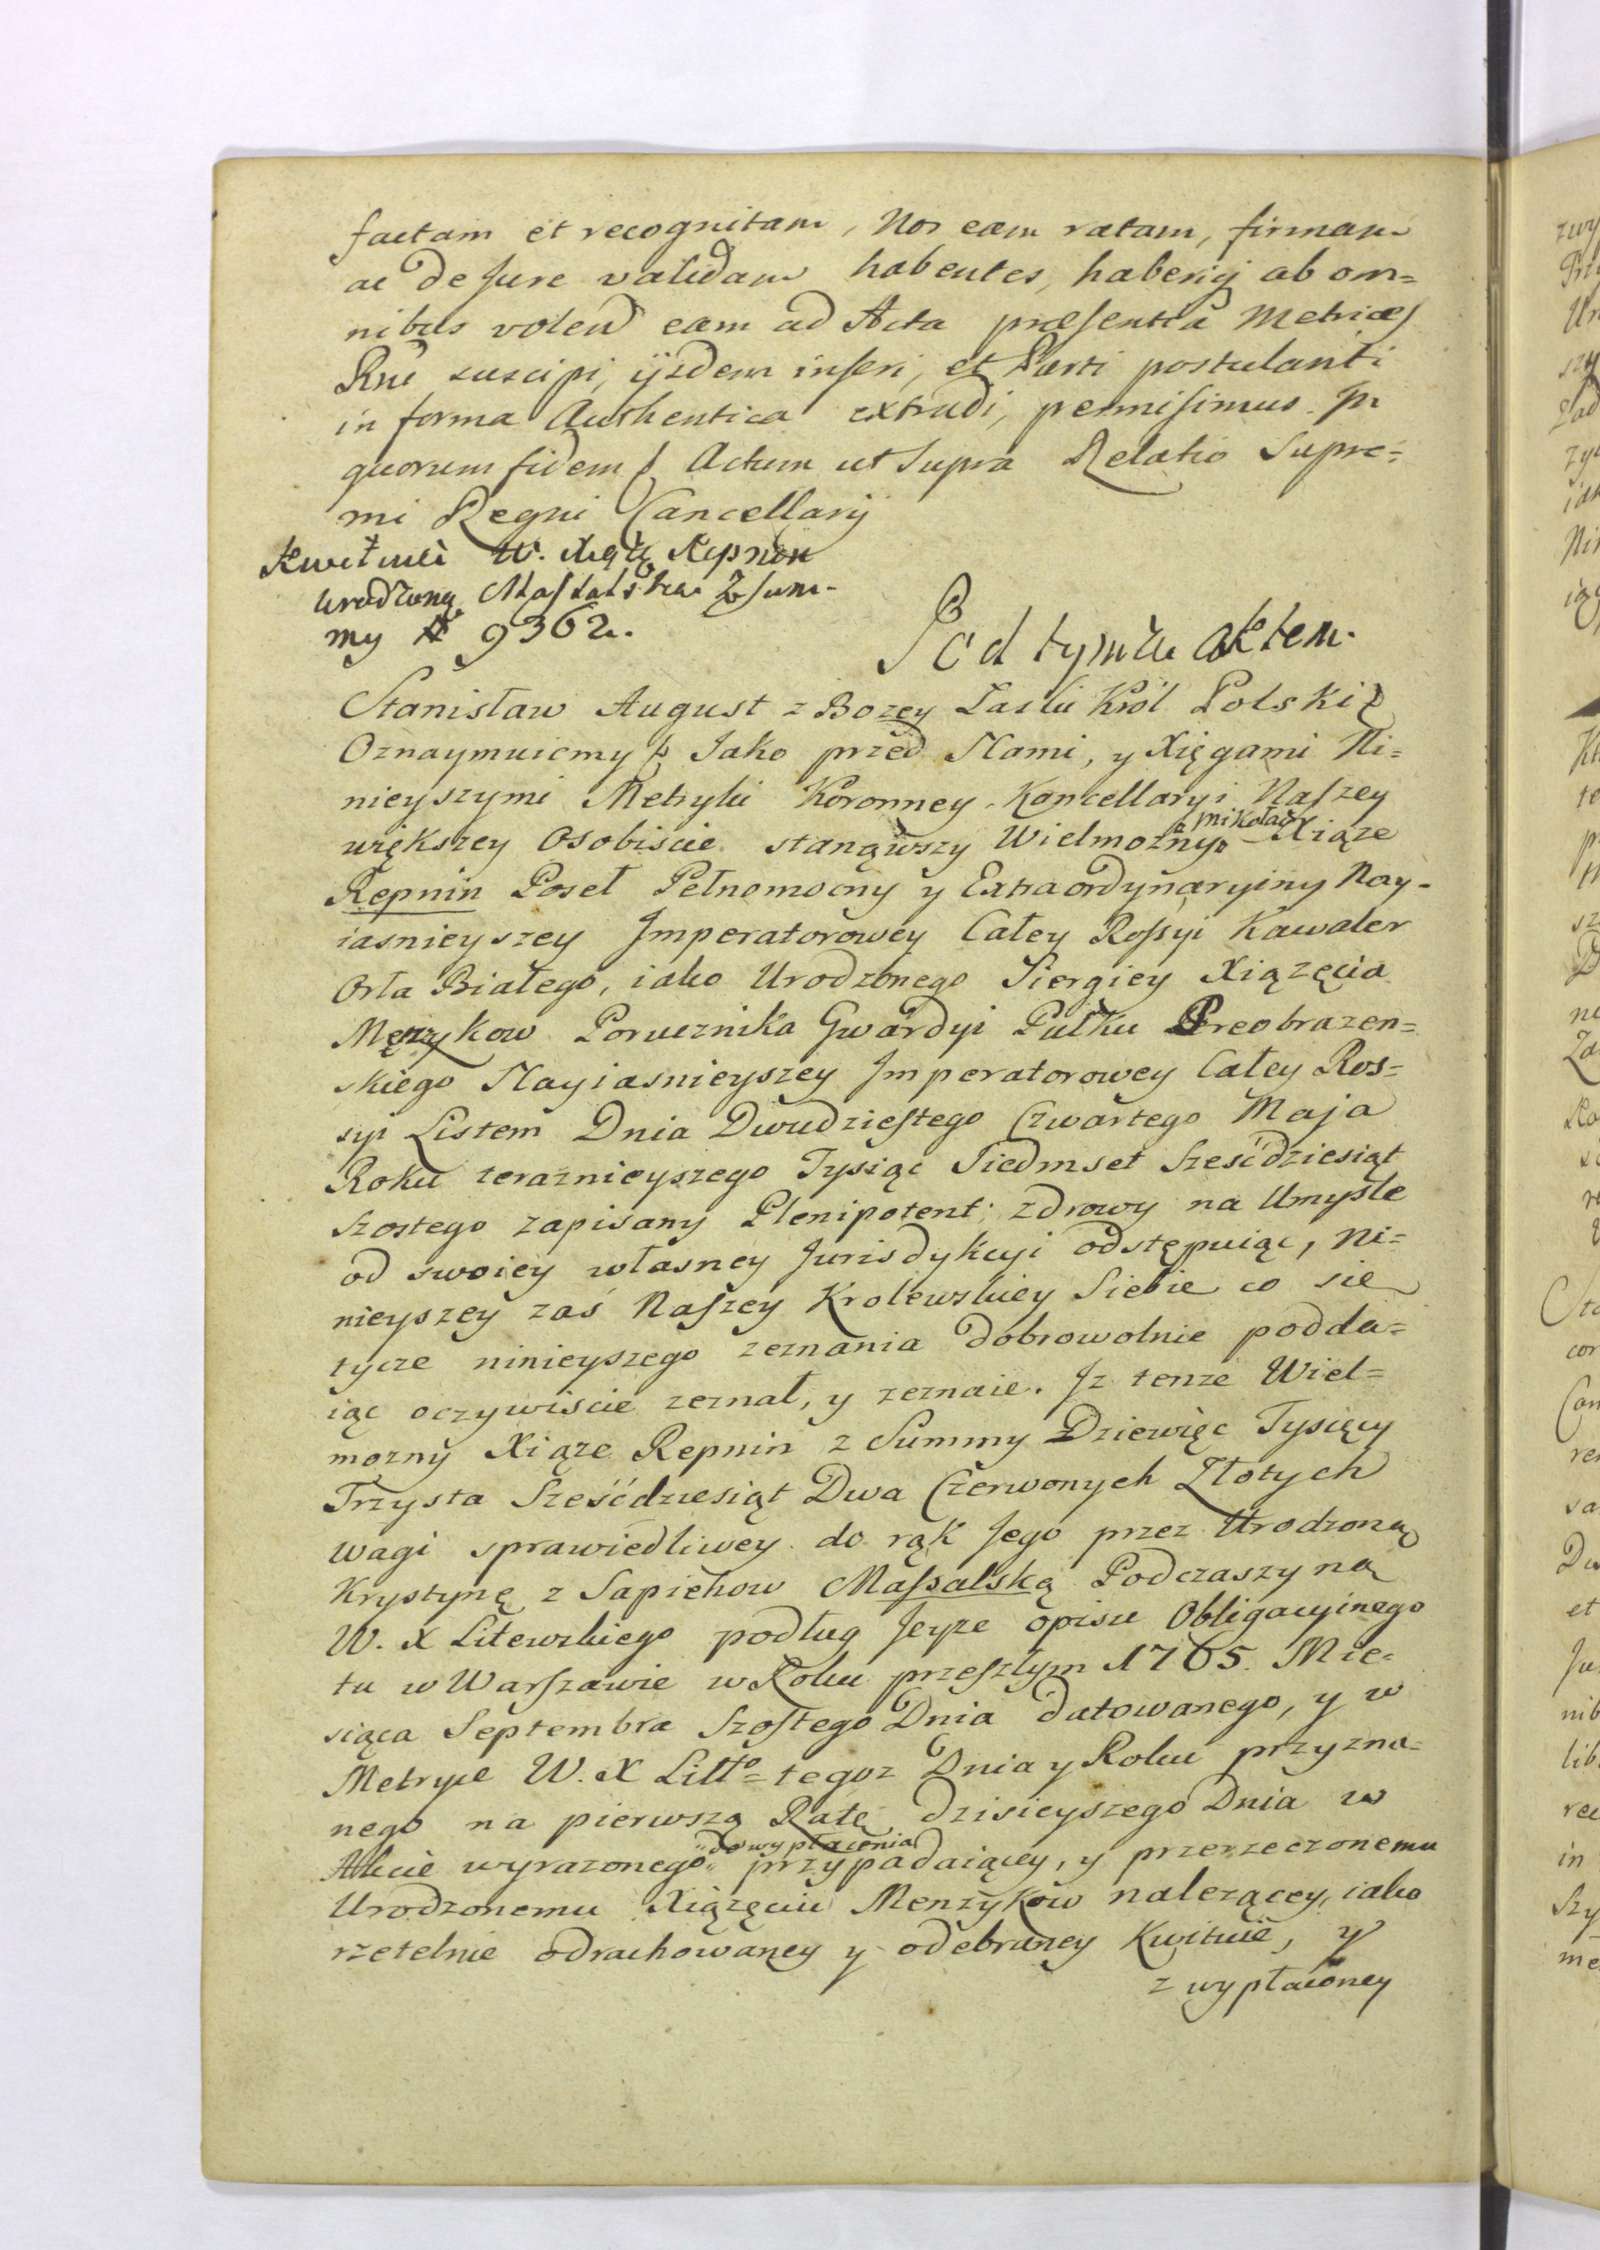 factam et recognitam, Nos eam ratam, firmam
ac de Jure validam habentes, haberiq ab om=
nibus volen eam ad Acta præsentia Metrices
Rni suscipi, ijsdem inseri, et Parti postulanti
in forma Authentica extradi, permisimus. In
quorum fidem Actum ut Supra Relatio Supre=
mi Regni Cancellarij
Kwituie W. Xiąże Repnin
Urodzoną Massalską z Sum-
my # 9362.
Pod tymże aktem.
Stanisław August z Bozey Łaski Król Polski
Oznaymuiemy Jako przed Nami, y Xięgami Ni=
nieyszymi Metryki Koronney Kancellaryi Naszey
większey Osobiscie stanąwszy Wielmożny Mikołay Xiąże
Repnin Poseł Pełnomocny y Extraordynaryiny Nay-
iasnieyszey Imperatorowey Całey Rossyi Kawaler
Orła Białego, iako Urodzonego Siergiey Xiązęcia
Męzykow Porucznika Gwardyi Pułku Preobrazen=
skiego Nayiasnieyszey Imperatorowey Całey Ros=
syi Listem Dnia Dwudziestego Czwartego Maja
Roku teraznieyszego Tysiąc Siedmset Sześćdziesiąt
szostego zapisany Plenipotent; zdrowy na Umysle
od swoiey własney Jurisdykcyi odstępuiąc, Ni=
nieyszey zaś Naszey Krolewskiey Siebie co się
tycze ninieyszego zeznania dobrowolnie podda=
iąc oczywiscie zeznał, y zeznaie. Iz tenze Wiel=
mozny Xiąze Repnin z Summy Dziewięc Tysięcy
Trzysta Sześćdziesiąt Dwa Czerwonych Złotych
wagi sprawiedliwey do rąk Jego przez Urodzoną
Krystynę z Sapiehow Massalską Podczaszyną
W. X Litewskiego podług Jeyze opisu Obligacyinego
tu w Warszawie w Roku przeszłym 1765. Mie=
siąca Septembra Szostego Dnia datowanego, y w
Metryce W. X Litto= tegoz Dnia y Roku przyzna=
nego na pierwszą Ratę dzisieyszego Dnia w
Akcie wyrazonego do wypłacenia przypadaiącey, y przerzeczonemu
Urodzonemu Xiązęciu Menzykow nalezącey, iako
rzetelnie odrachowaney y odebraney Kwituie, y
z wypłaconey